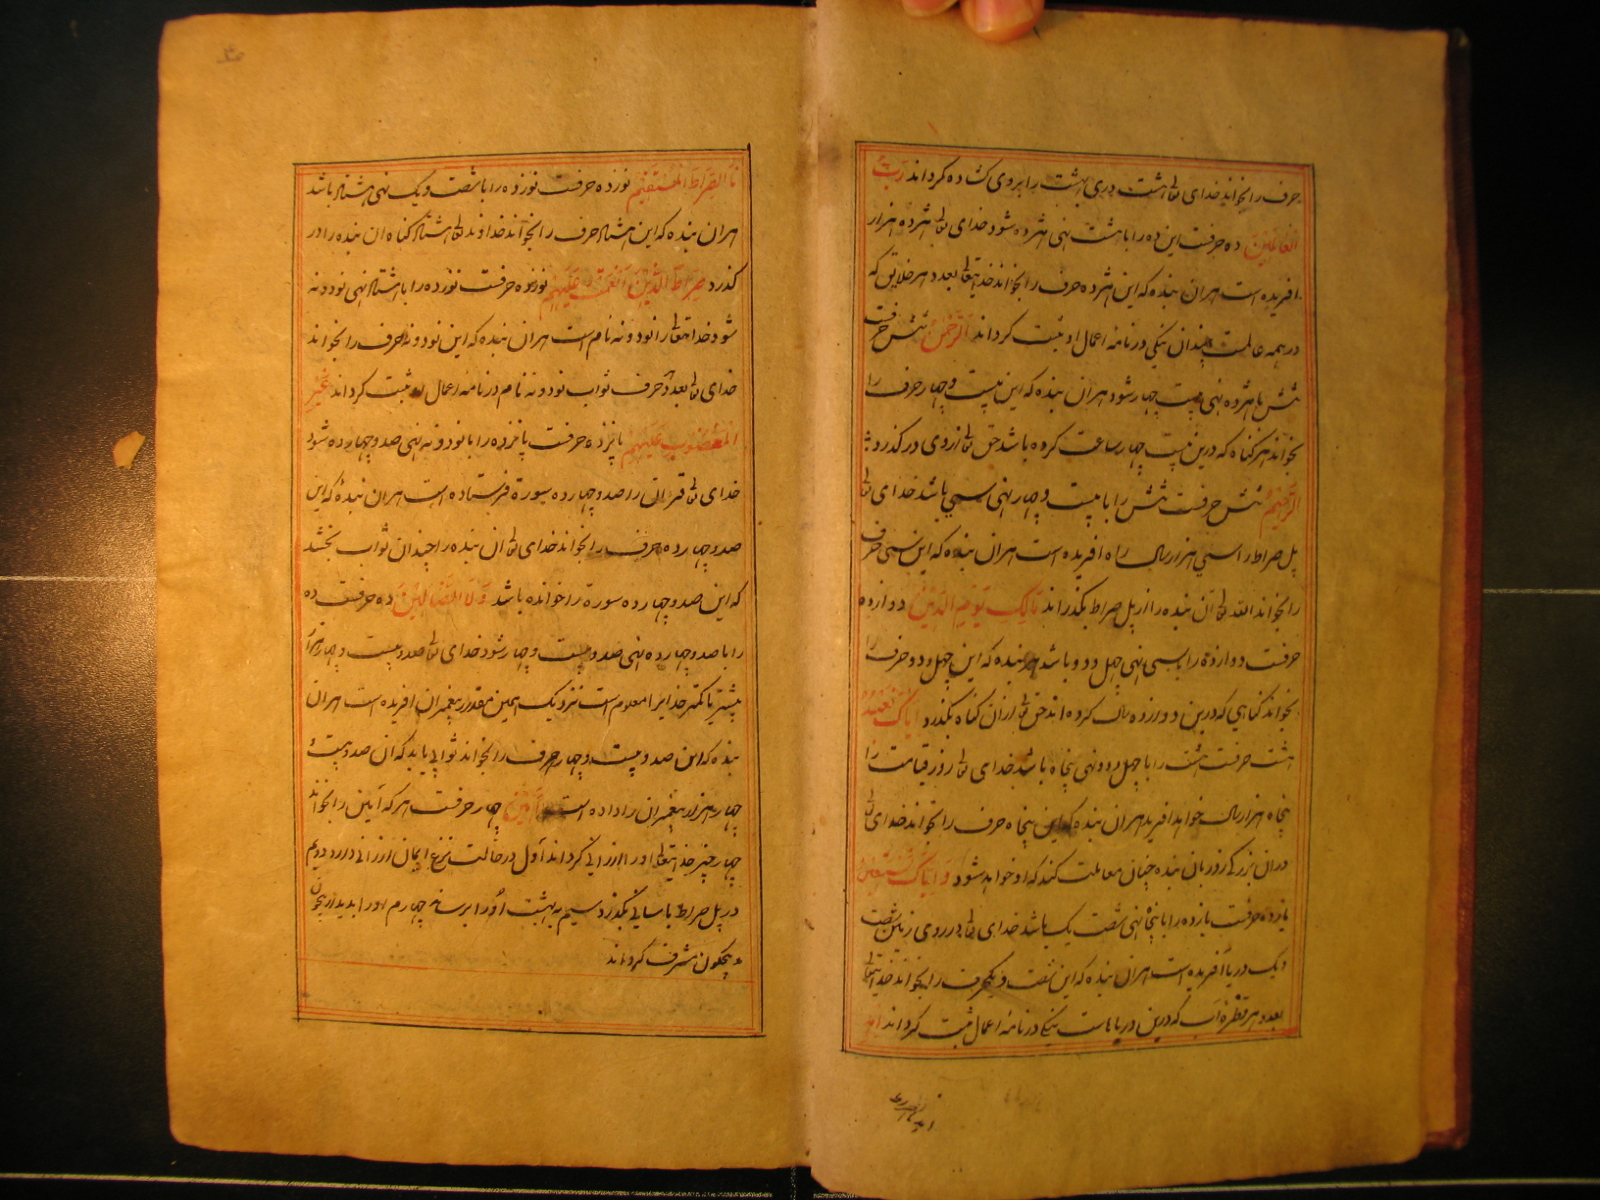 حرف را بخواند خدای تعالی هشت دری بهشت را بروی کشاده کرداند رَبِّ
الْعَالَمِیْنَ ده حرفست این ده را با هشت نهی هژده شود خدای تعالی هژده هزار
افریده است هران بنده که این هژده حرف را بخواند خدایتعالی بعدد هر خلایق که
در همه عالمست چندان نیکی در نامه اعمال او ثبت کرداند اَلرَّحْمٰنِ شش حرفست
شش با هژده نهی بیست چهار شود هران بنده که این بیست و چهار حرف را
بخواند هر کناه که درین بیست چهار ساعت کرده باشد حق تعالی از وی در کذرد
الرَّحِیْمِ شش حرفست شش را با بیست و چهار نهی سی باشد خدای تعالی
پل صراط را سی هزار ساله راه افریده است هران بنده که این سی حرف
را بخواند الله تعالی آن بنده را از پل صراط بکذراند مَالِکِ یَوْمِ الدِّیْنِ دوازده
حرفست دوازده را با سی نهی چهل و دو باشد هر بنده که این چهل و دو حرف را
بخواند کناهی که درین دوازده سال کرده اند حق تعالی ازان کناه بکذرد اِیَّاکَ نَعْبُدُ
هشت حرفست هشت را با چهل و دو نهی پنجاه باشد خدای تعالی روز قیامت را
پنجاه هزار سال خواهد افرید هران بنده که این پنجاه حرف را بخواند خدای تعالی
دران بزرکی روز بان بنده چنان معاملت کند که او خواهد شود وَاِیَّاکَ نَسْتَعِیْنُ
یازده حرفست یازده را با پنجاه نهی شصت یک باشد خدای تعالی در روی زمین شصت
و یک دریا آفریده است هران بنده که این شصت و یکحرف را بخواند خدایتعالی
بعدد هر قطره آب که درین دریاهاست نیکی در نامه اعمال ثبت کرداند اهد
نا الصراط
نَا الصِّرَاطَ الْمُسْتَقِیْمَ نوزده حرفست نوزده را با شصت و یک نهی هشتاد باشد
هران بنده که این هشتاد حرف را بخواند خداوند تعالی هشتاد کناه ان بنده را در
کذرد صِرَاطَ الَّذِیْنَ اَنْعَمْتَ عَلَیْهِمْ نوزده حرفست نوزده را با هشتاد نهی نود و نه
شود خدایتعالی را نود و نه نام است هران بنده که این نود و نه حرف را بخواند
خدای تعالی بعدد حرف ثواب نود و نه نام در نامه اعمال او ثبت کرداند غَیْرِ
الْمَغْضُوْبِ عَلَیْهِمْ پانزده حرفست پانزده را با نود و نه نهی صد و چهارده شود
خدای تعالی قران را صد و چهارده سورة فرستاده است هران بنده که این
صد و چهارده حرف را بخواند خدای تعالی ان بنده را چندان ثواب بخشد
که این صد و چهارده سورة را خوانده باشد وَلَا الضَّالِّیْنَ ده حرفست ده
را با صد و چهارده نهی صد و بیست و چهار شود خدای تعالی صد و بیست و چهار هزار
بیشتر یا کمتر خدایرا معلوم است نزدیک همین مقدار پیغمبران افریده است هران
بنده که این صد و بیست و چهار حرف را بخواند ثوابی یابد که ان صد و بیست
چهار هزار پیغمبران را داده است آمِیْن چهار حرفست هر که آمین را بخواند
چهار چیز خدایتعالی او را ارزانی کرداند اول در حالت نزع ایمان ارزانی دارد دویم
در پل صراط باسانی بکذرد سیم به بهشت او را برساند چهارم او را بدیدار بیچون
و بیچکون مشرف کرداند